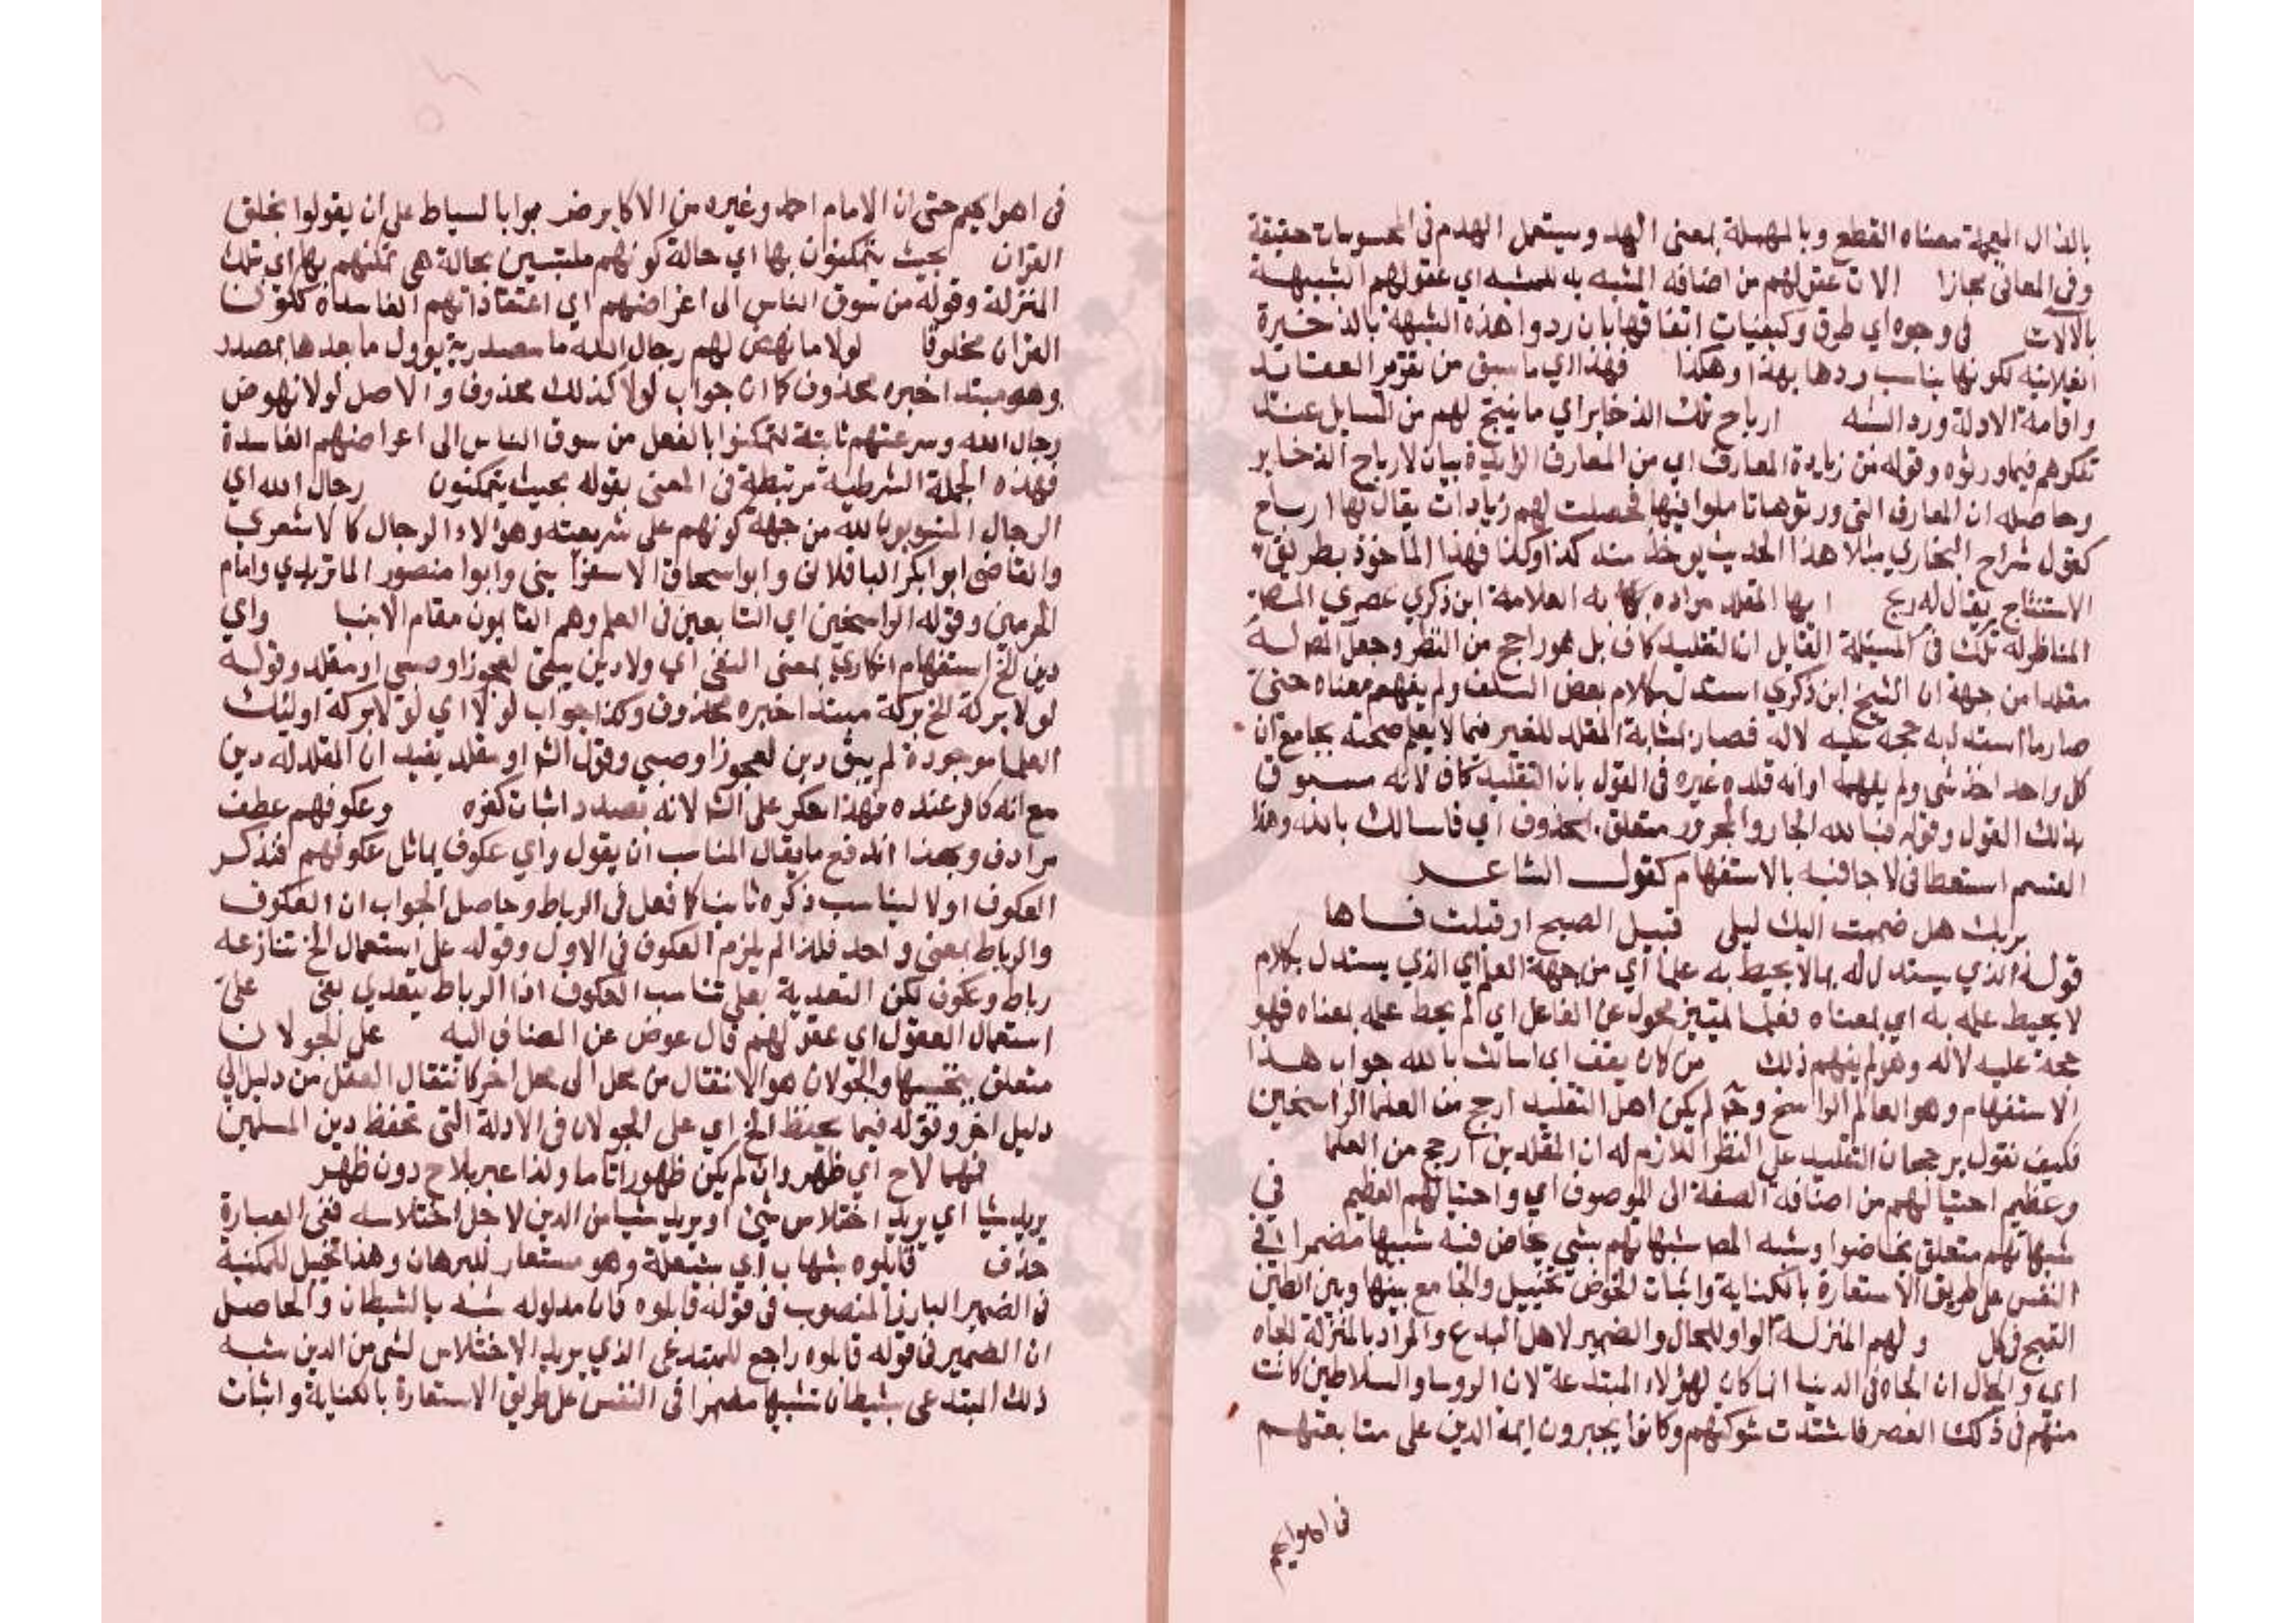 بالذال المعجمة معناه القطع وبالمهملة بمعنى الهد ويستعمل الهدم في المحسوسات حقيقة
وفي المعاني مجازا الات عقولهم من اضافة المشبه به للمشبه اي عقولهم الشبيهة
بالالات في وجوه اي طرق وكيفيات اتفاقها بان ردوا هذه الشبهة بالذخيرة
الفلانية لكونها يناسب ردها بهذا وهكذا فهذا اي ما سبق من تقرير العقايد
واقامة الادلة ورد الشبه ارباح تلك الذخاير اي ما ينتج لهم من المسايل عند
تفكرهم فيما ورثوه وقوله من زيادة المعارف اي من المعارف الزايدة بيان لارباح الذخاير
وحاصله ان المعارف التي ورثوها تاملوا فيها فحصلت لهم زيادات يقال لها ارباح
كقول شراح البخاري مثلا هذا الحديث يوخذ منه كذا وكذا فهذا الماخوذ بطريق
الاستنتاج يقال له ربح ايها المقلد مراده به العلامة ابن ذكري عصري المص
المناظر له تلك في المسئلة القايل ان التقليد كاف بل هو راجح من النظر وجعل المص له
مقلدا من جهة ان الشيخ ابن ذكري استدل بكلام بعض السلف ولم يفهم معناه حتى
صار ما استدل به حجة عليه لا له فصار بمثابة المقلد للغير فيما لا يعلم صحته بجامع ان
كل واحد اخذ شي ولم يفهمه او انه قلده غيره في القول بان التقليد كاف لانه مسبوق
بذلك القول وقوله فبالله الجار والمجرور متعلق بمحذوف اي فاسالك بالله وهذا
القسم استعطافي لاجافيه بالاستفهام كقول الشاعر
بربك هل ضممت اليك ليلى قبيل الصبح او قبلت فاها
قوله الذي يستدل له بما لا يحيط به علما اي من جهة العلم اي الذي يستدل بكلام
لا يحيط علمه به اي بمعناه فعلما تمييز محول عن الفاعل اي لم يحط علمه بمعناه فهو
حجة عليه لا له وهو لم يفهم ذلك من كان يقف اي اسالك بالله جواب هذا
الاستفهام وهو العالم الراسخ وح لم يكن اهل التقليد ارجح من العلما الراسخين
فكيف نقول برجحان التقليد على النظر اللازم له ان المقلدين ارجح من العلما
وعظيم احتيالهم من اضافة الصفة الى الموصوف اي واحتيالهم العظيم في
شبهاتهم متعلق بخاضوا وشبه المص شبهاتهم بشي يخاض فيه شبيها مضمرا في
النفس على طريق الاستعارة بالكناية واثبات الخوض تخييل والجامع بينها وبين الطين
القبح في كل ولهم المنزلة الواو للحال والضمير لاهل البدع والمراد بالمنزلة الجاه
اي والحال ان الجاه في الدنيا انما كان لهؤلاء المبتدعة لان الروسا والسلاطين كانت
منهم في ذلك العصر فاشتدت شوكتهم وكانوا يجبرون ايمة الدين على متابعتهم
في اهوايهم
في اهوايهم حتى ان الامام احمد وغيره من الاكابر ضربوا بالسياط على ان يقولوا بخلق
القران بحيث يتمكنون بها اي حالة كونهم ملتبسين بحالة هي تمكنهم بها اي تلك
المنزلة وقوله من سوق الناس الى اغراضهم اي اعتقاداتهم الفاسدة ككون
القران مخلوقا لولا ما نهض لهم رجال الله ما مصدرية يوول ما بعدها بمصدر
وهو مبتدا خبره محذوف كما ان جواب لولا كذلك محذوف والاصل لولا نهوض
رجال الله وسرعتهم ثابتة لتمكنوا بالفعل من سوق الناس الى اعراضهم الفاسدة
فهذه الجملة الشرطية مرتبطة في المعنى بقوله بحيث يتمكنون رجال الله اي
الرجال المنسوبون لله من جهة كونهم على شريعته وهؤلاء الرجال كالاشعري
والقاضي ابو بكر الباقلاني وابو اسحاق الاسفرايني وابوا منصور الماتريدي وامام
الحرمين وقوله الراسخين اي الثابتين في العلم وهم القايمون مقام الانبيا واي
دين الخ استفهام انكاري بمعنى النفي اي ولا دين يبقى لعجوز او صبي او مقلد وقوله
لولا بركة الخ بركة مبتدا خبره محذوف وكذا جواب لولا اي لولا بركة اوليك
العلما موجودة لم يبق دين لعجوز او صبي وقول الش او مقلد يفيد ان المقلد له دين
مع انه كافر عنده فهذا عكر على الش لانه بصدد اثبات كفره وعكوفهم عطف
مرادف وبهذا اندفع ما يقال المناسب ان يقول واي عكوف يماثل عكوفهم فنذكر
العكوف اولا ليناسب ذكره ثانيا كما فعل في الرباط وحاصل الجواب ان العكوف
والرباط بمعنى واحد فلذا لم يلزم العكوف في الاول وقوله على استعمال الخ تنازعه
رباط وعكوف لكن التعدية بعلى تناسب العكوف اذ الرباط يتعدي بفي على
استعمال العقول اي عقولهم فال عوض عن المضاف اليه على الجولان
متعلق والجولان هو الانتقال من محل الى محل اخر كانتقال العقل من دليل الى
دليل اخر وقوله فيما يحفظ الخ اي على الجولان في الادلة التي تحفظ دين المسلمين
فهما لاح اي ظهر وان لم يكن ظهورا تاما ولذا عبر بلاح دون ظهر
يريد شيا اي يريد اختلاس شيئ او يريد شيا من الدين لاجل اختلاسه ففي العبارة
حذف قابلوه بشهاب اي بشعلة وهو مستعار للبرهان وهذا تخييل للمكنية
في الضمير البارز المنصوب في قوله قابلوه فان مدلوله شبه بالشيطان والحاصل
ان الضمير في قوله قابلوه راجع للمبتدعي الذي يريد الاختلاس لشي من الدين شبه
ذلك المبتدعي بشيطان تشبيها مضمرا في النفس على طريق الاستعارة بالكناية واثبات